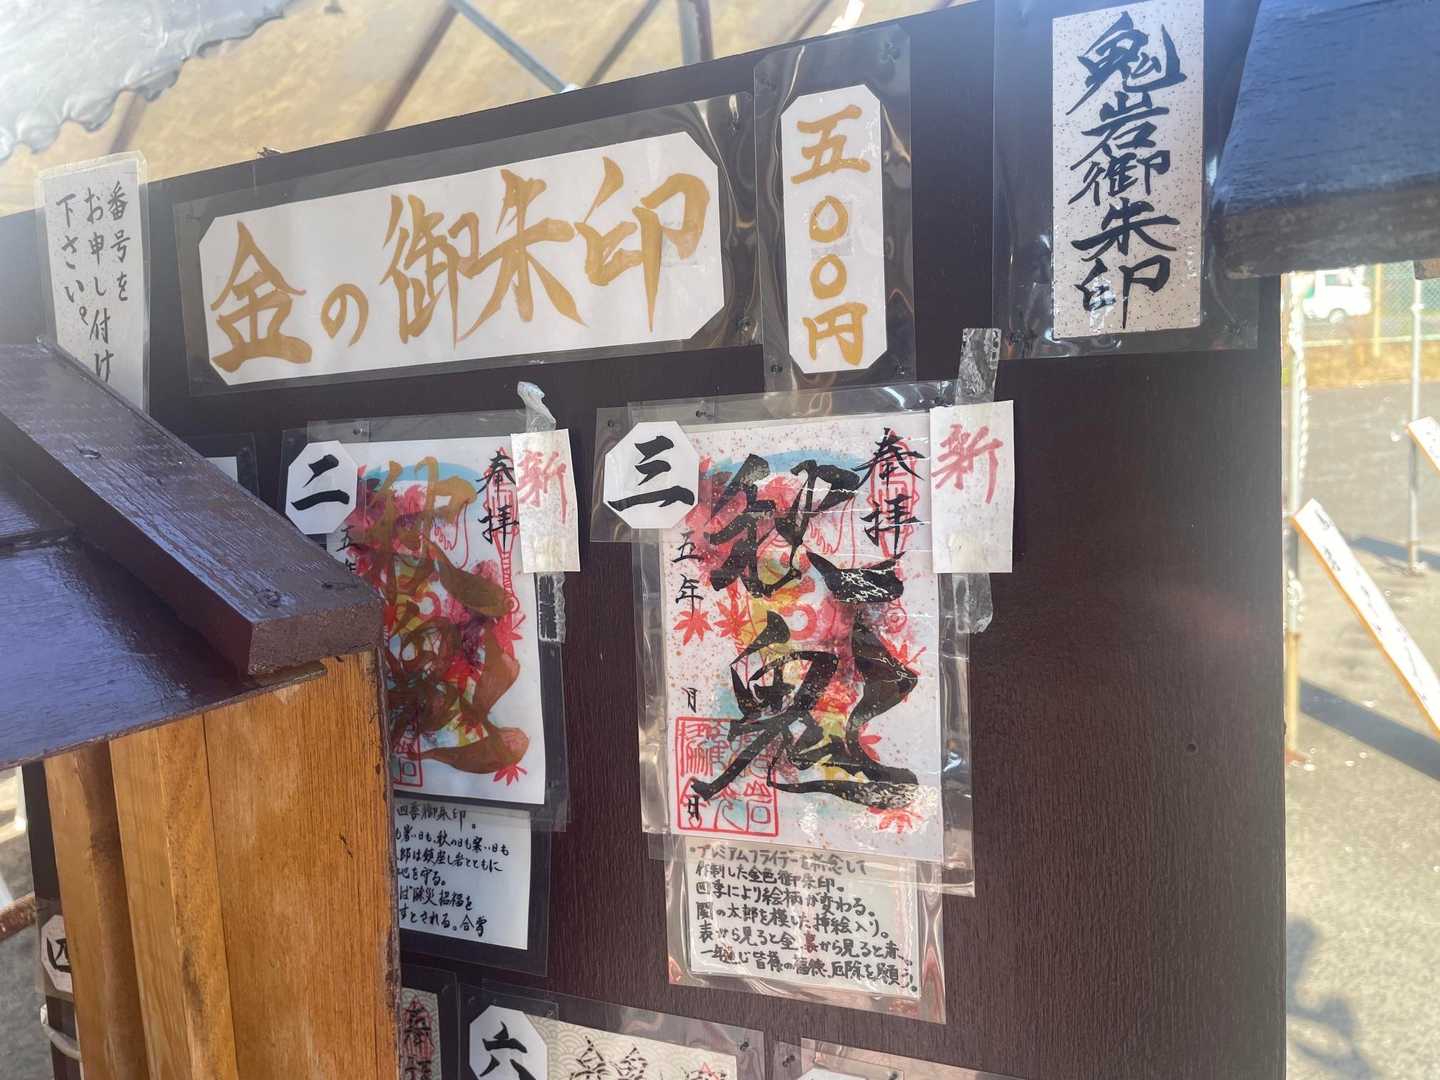 番号を
お申し付け
下さい。
金の御朱印
五〇〇円
鬼岩御朱印
二
新
奉拝
秋
鬼
三
新
奉拝
秋
鬼
五年
月
日
四季御朱印。
も暑い日も、秋の日も寒い日も
郎は鎮座し岩とともに
地を守る。
ば除災招福を
すとされる。
・プレミアムフライデーを祈念して
作制した金色御朱印。
四季により絵柄が変わる。
関の太郎を模した挿絵入り。
表から見ると金、裏から見ると赤。
一年通じ皆様の福徳、厄除を願う。
四
六